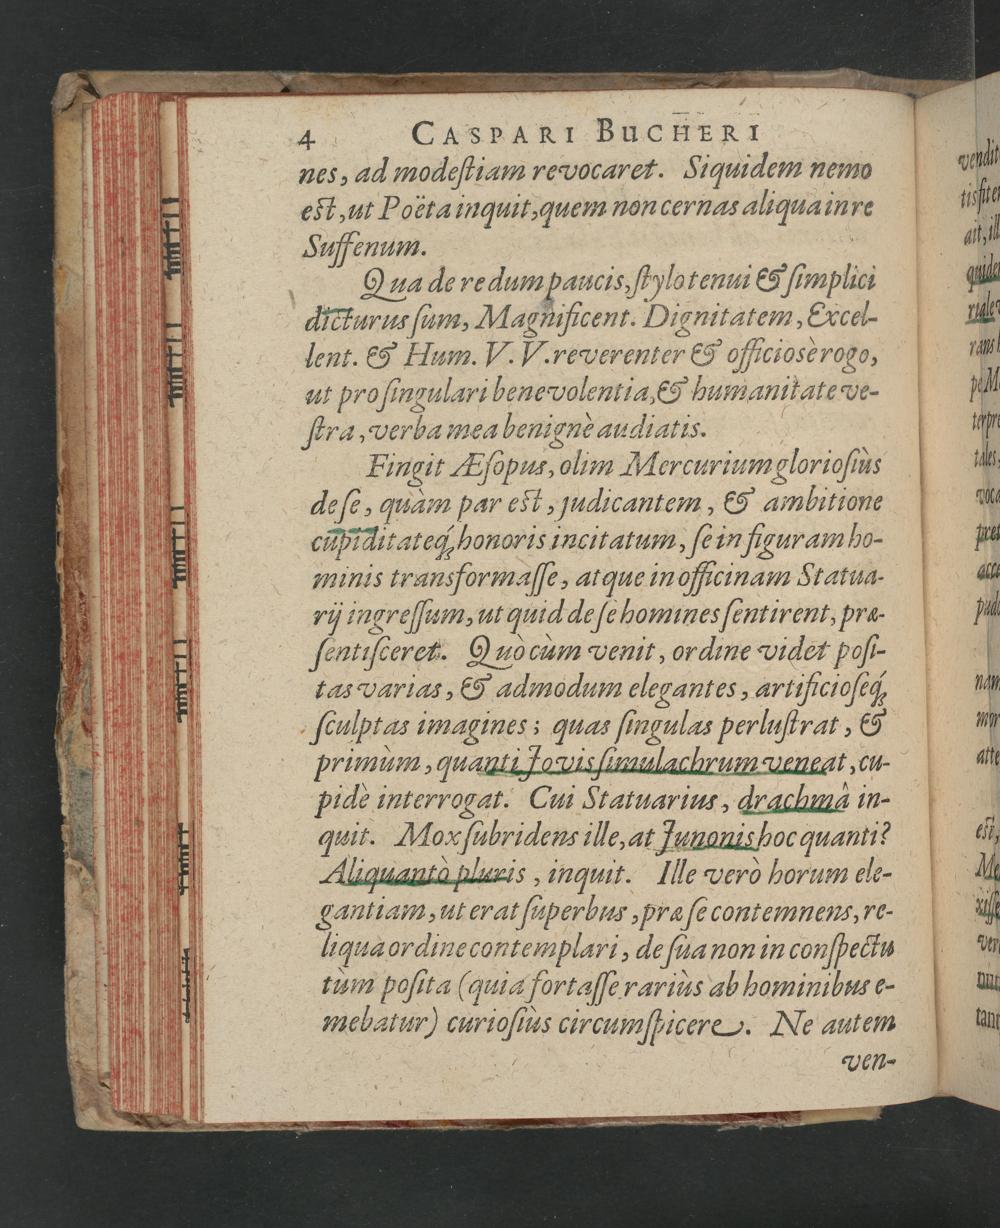 4 CASPARI BUCHERI
nes, ad modeſtiam revocaret. Siquidem nemo
eſt, ut Poëta inquit, quem non cernas aliqua in re
Suffenum.
Qua de re dum paucis, ſtylo tenui & ſimplici
dicturus ſum, Magnificent. Dignitatem, Excel-
lent. & Hum. V. V. reverenter & officioſè rogo,
ut pro ſingulari benevolentia, & humanitate ve-
ſtra, verba mea benignè audiatis.
Fingit Æſopus, olim Mercurium glorioſiùs
de ſe, quàm par eſt, judicantem, & ambitione
cupiditateq́; honoris incitatum, ſe in figuram ho-
minis transformaſſe, atque in officinam Statua-
rij ingreſſum, ut quid de ſe homines ſentirent, præ-
ſentiſceret. Quò cùm venit, ordine videt poſi-
tas varias, & admodum elegantes, artificioſeq́;
ſculptas imagines; quas ſingulas perluſtrat, &
primùm, quanti Jovis ſimulachrum veneat, cu-
pidè interrogat. Cui Statuarius, drachmâ in-
quit. Mox ſubridens ille, at Junonis hoc quanti?
Aliquantò pluris, inquit. Ille verò horum ele-
gantiam, ut erat ſuperbus, præ ſe contemnens, re-
liqua ordine contemplari, de ſua non in conſpectu
tùm poſita (quia fortaſſe rariùs ab hominibus e-
mebatur) curioſiùs circumſpicere. Ne autem
ven-